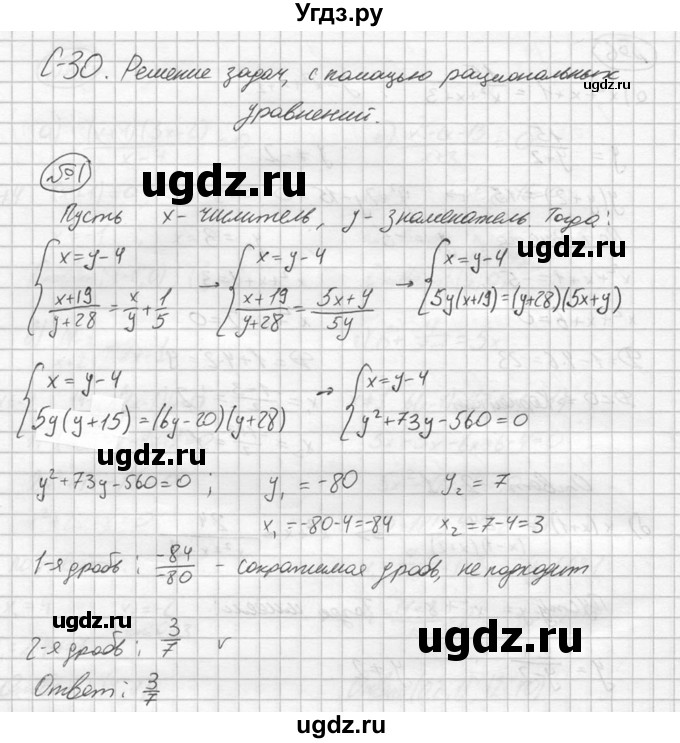 Угдз.ру
С-30. Решение задач, с помощью рациональных
уравнений.
ugdz.ru
№1
ugdz.ru
Пусть x - числитель, y - знаменатель. Тогда:
ugdz.ru
{ x = y - 4 ; (x+19)/(y+28) = x/y + 1/5 → { x = y - 4 ; (x+19)/(y+28) = (5x+y)/5y → { x = y - 4 ; 5y(x+19) = (y+28)(5x+y)
ugdz.ru
{ x = y - 4 ; 5y(y+15) = (6y-20)(y+28) → { x = y - 4 ; y² + 73y - 560 = 0
ugdz.ru
ugdz.ru
y² + 73y - 560 = 0 ; y₁ = -80 y₂ = 7
x₁ = -80-4 = -84 x₂ = 7-4 = 3
1-я дробь: -84/-80 - сократимая дробь, не подходит
ugdz.ru
ugdz.ru
2-я дробь: 3/7 v
Ответ: 3/7
ugdz.ru
ugdz.ru